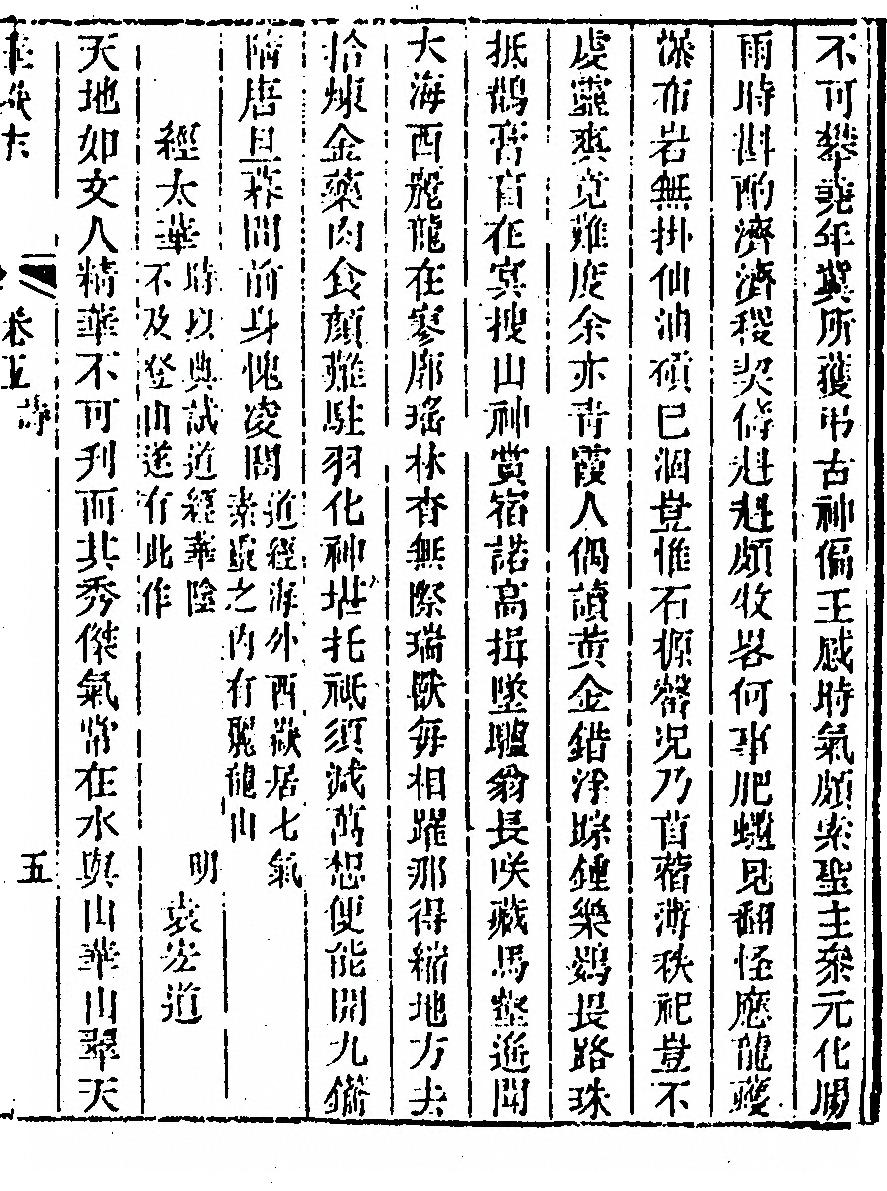 不可攀堯年與所獲吊古神偏王感時氣頗索聖主叅元化賜
雨時斟酌濟濟稷契儔魁魁頗牧畧何事肥𧔥見翻怪應龍蠖
瀑布岩無掛仙油磧已涸豈惟石㮣罄况乃苜蓿薄秩祀豈不
虔靈爽竟難度余亦青霞人偶讀黃金錯淨琮鍾樂鷃長路珠
抵鵲膏盲在冥搜山神賞宿諾高揖墜驢翁長咲藏馬壑近聞
大海西麗龍在寥廓瑤林杳無際瑞獸每相躍那得縮地方去
拾煉金藥肉食顏難駐羽化神堪托祇須減萬想便能開九鑰
隋唐旦暮間前身愧凌閣
道經海外西嶽居七氣
素靈之内有麗龍山
經太華
時以典試道經華陰
不及登山遂有此作
明
袁宏道
天地如文人精華不可刋而其秀傑氣常在水與山華山翠天
華嶽志
卷五
詩
五